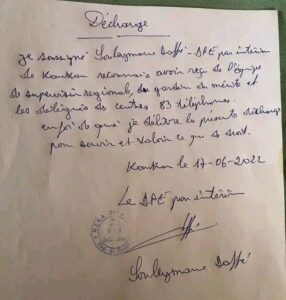 Décharge
Je soussigné Souleymane Daffé DPE par intérim
de Kankan reconnais avoir reçu de l'équipe
de supervision regional, du gardien du mérite et
les délégués de centres 83 téléphones.
en foi de quoi je délivre la présente décharge
pour servir et valoir ce que de droit.
Kankan le 17-06-2022
Le DPE par intérim
Souleymane Daffé